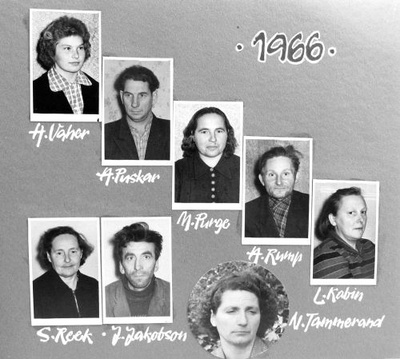 · 1966 ·
H. Vaher
A. Puskar
M. Purge
A. Rump
L. Kabin
S. Reek · J. Jakobson
N. Tammerand